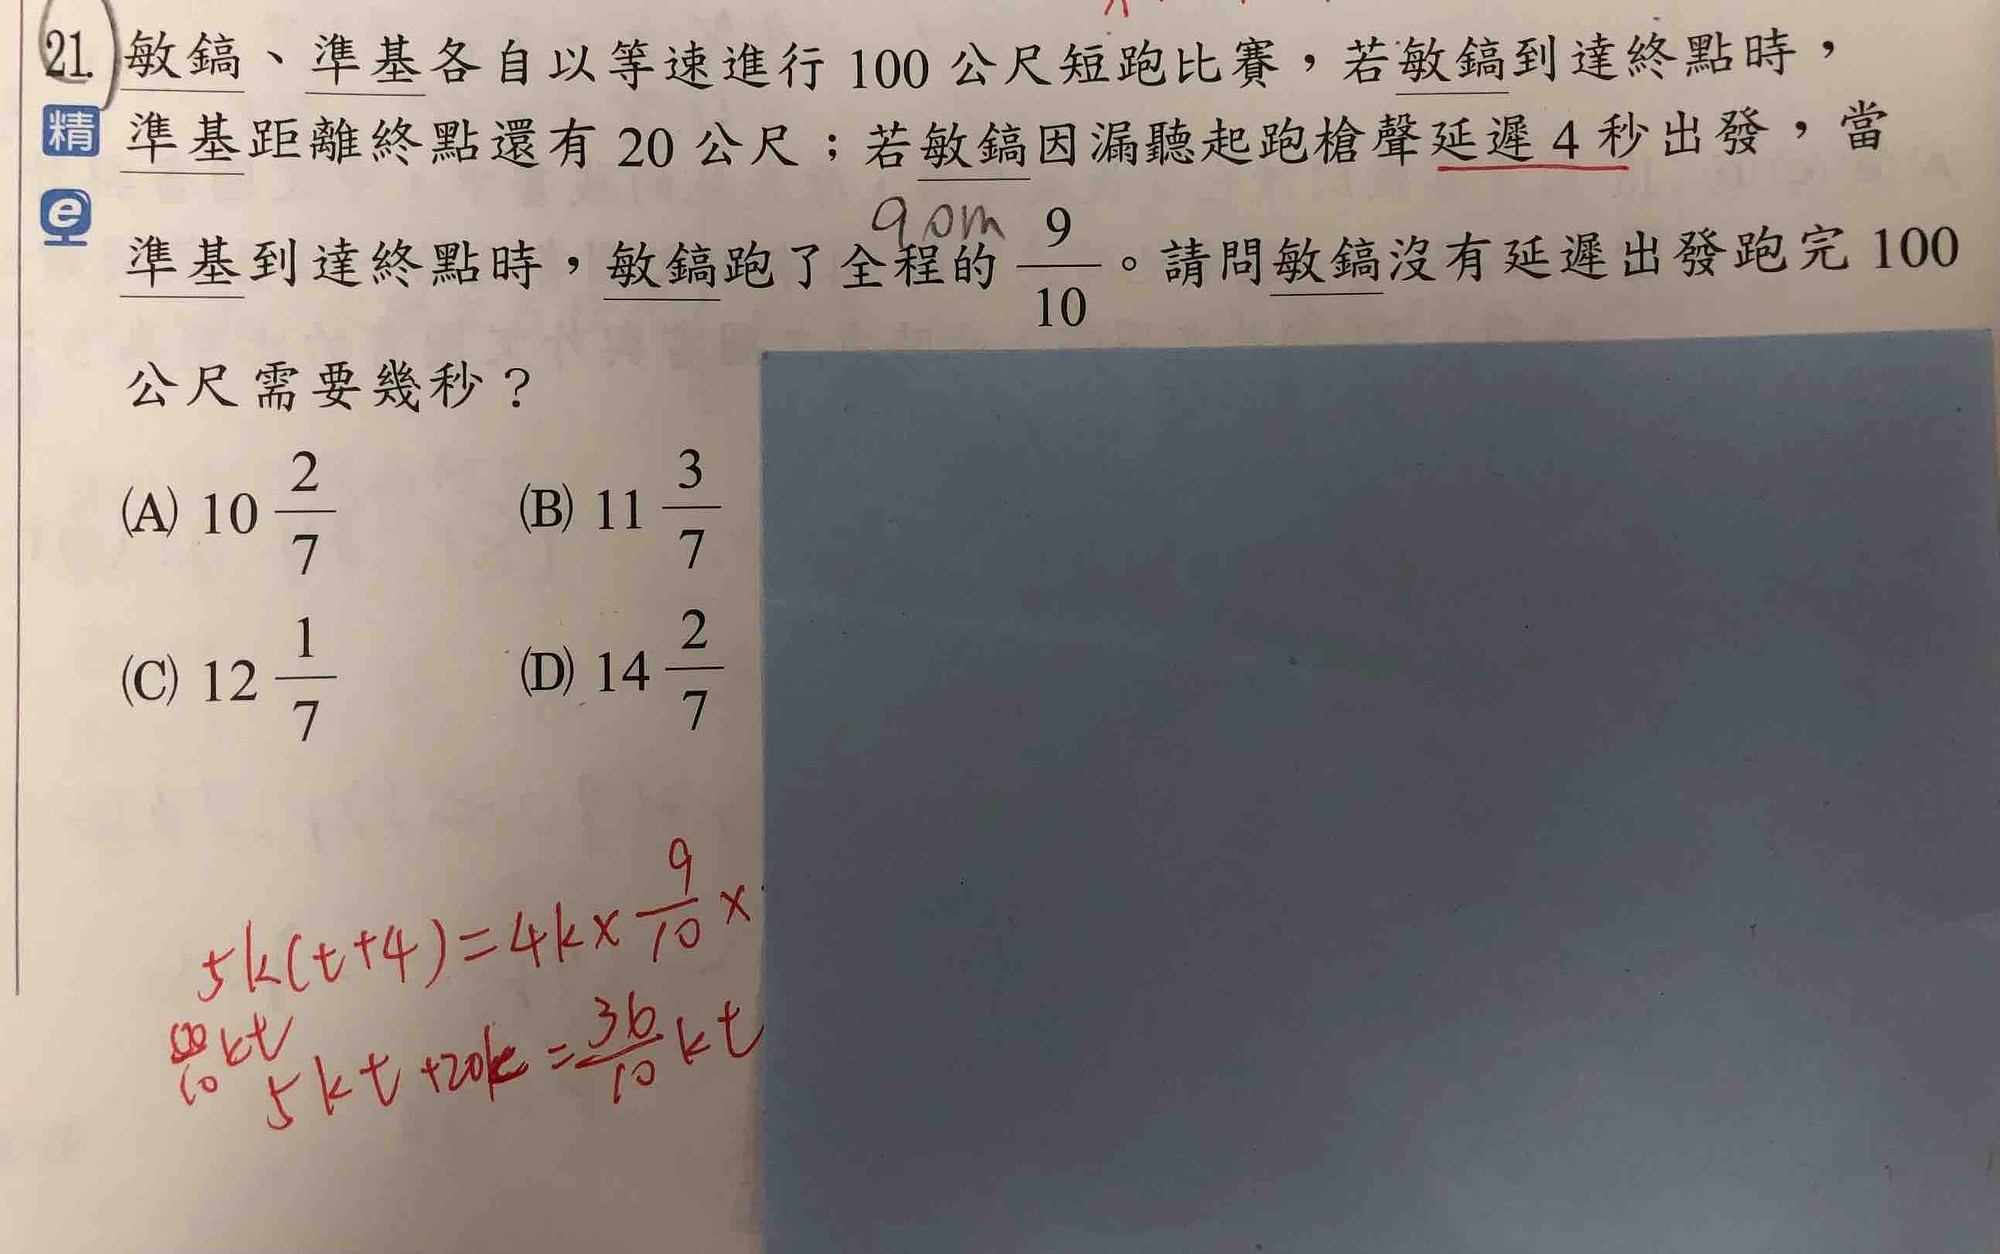 21. 敏鎬、準基各自以等速進行 100 公尺短跑比賽，若敏鎬到達終點時，
精 準基距離終點還有 20 公尺；若敏鎬因漏聽起跑槍聲延遲 4 秒出發，當
e
90m
準基到達終點時，敏鎬跑了全程的 9/10。請問敏鎬沒有延遲出發跑完 100
公尺需要幾秒？
(A) 10 2/7 (B) 11 3/7
(C) 12 1/7 (D) 14 2/7
5k(t+4)=4k× 9/10 ×
kt
5kt+20k=36/10 kt